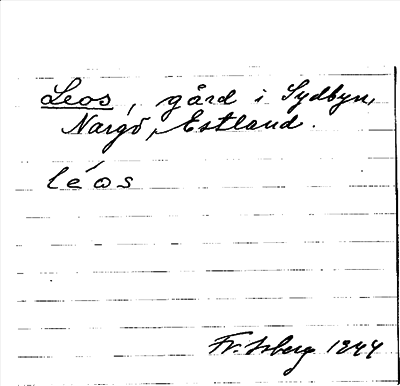 Leos, gård i Sydbyn,
Nargö, Estland.
léos
Fr. Isberg 1944